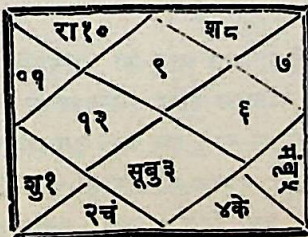 रा१०
श८
११
९
७
१२
६
शु१
सूबु३
मंवृ५
२चं
४के